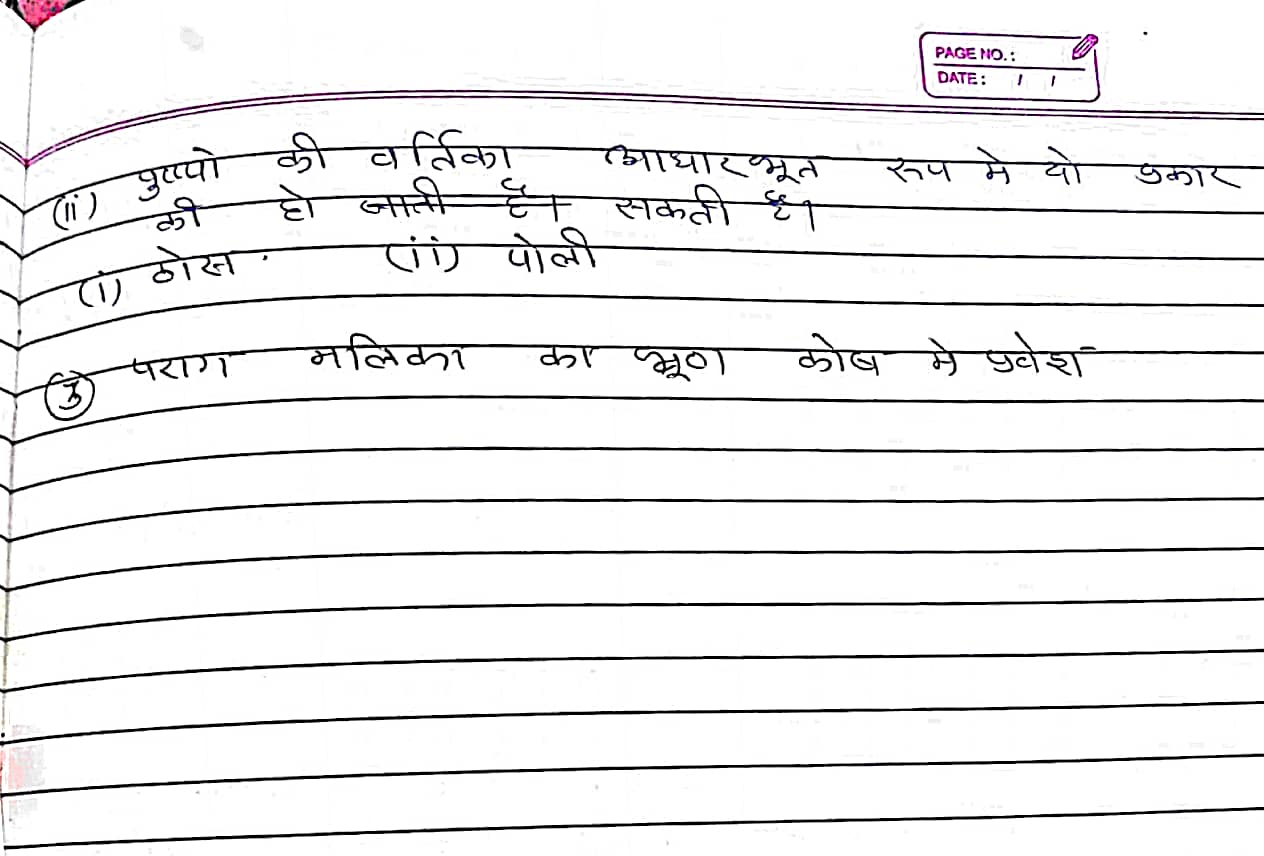 PAGE NO.:
DATE: / /
(ii) पुष्पो की वर्तिका आधारभूत रूप मे दो प्रकार
की हो जाती है। सकती है।
(i) ठोस. (ii) पोली
③ पराग नलिका का भ्रूण कोष मे प्रवेश